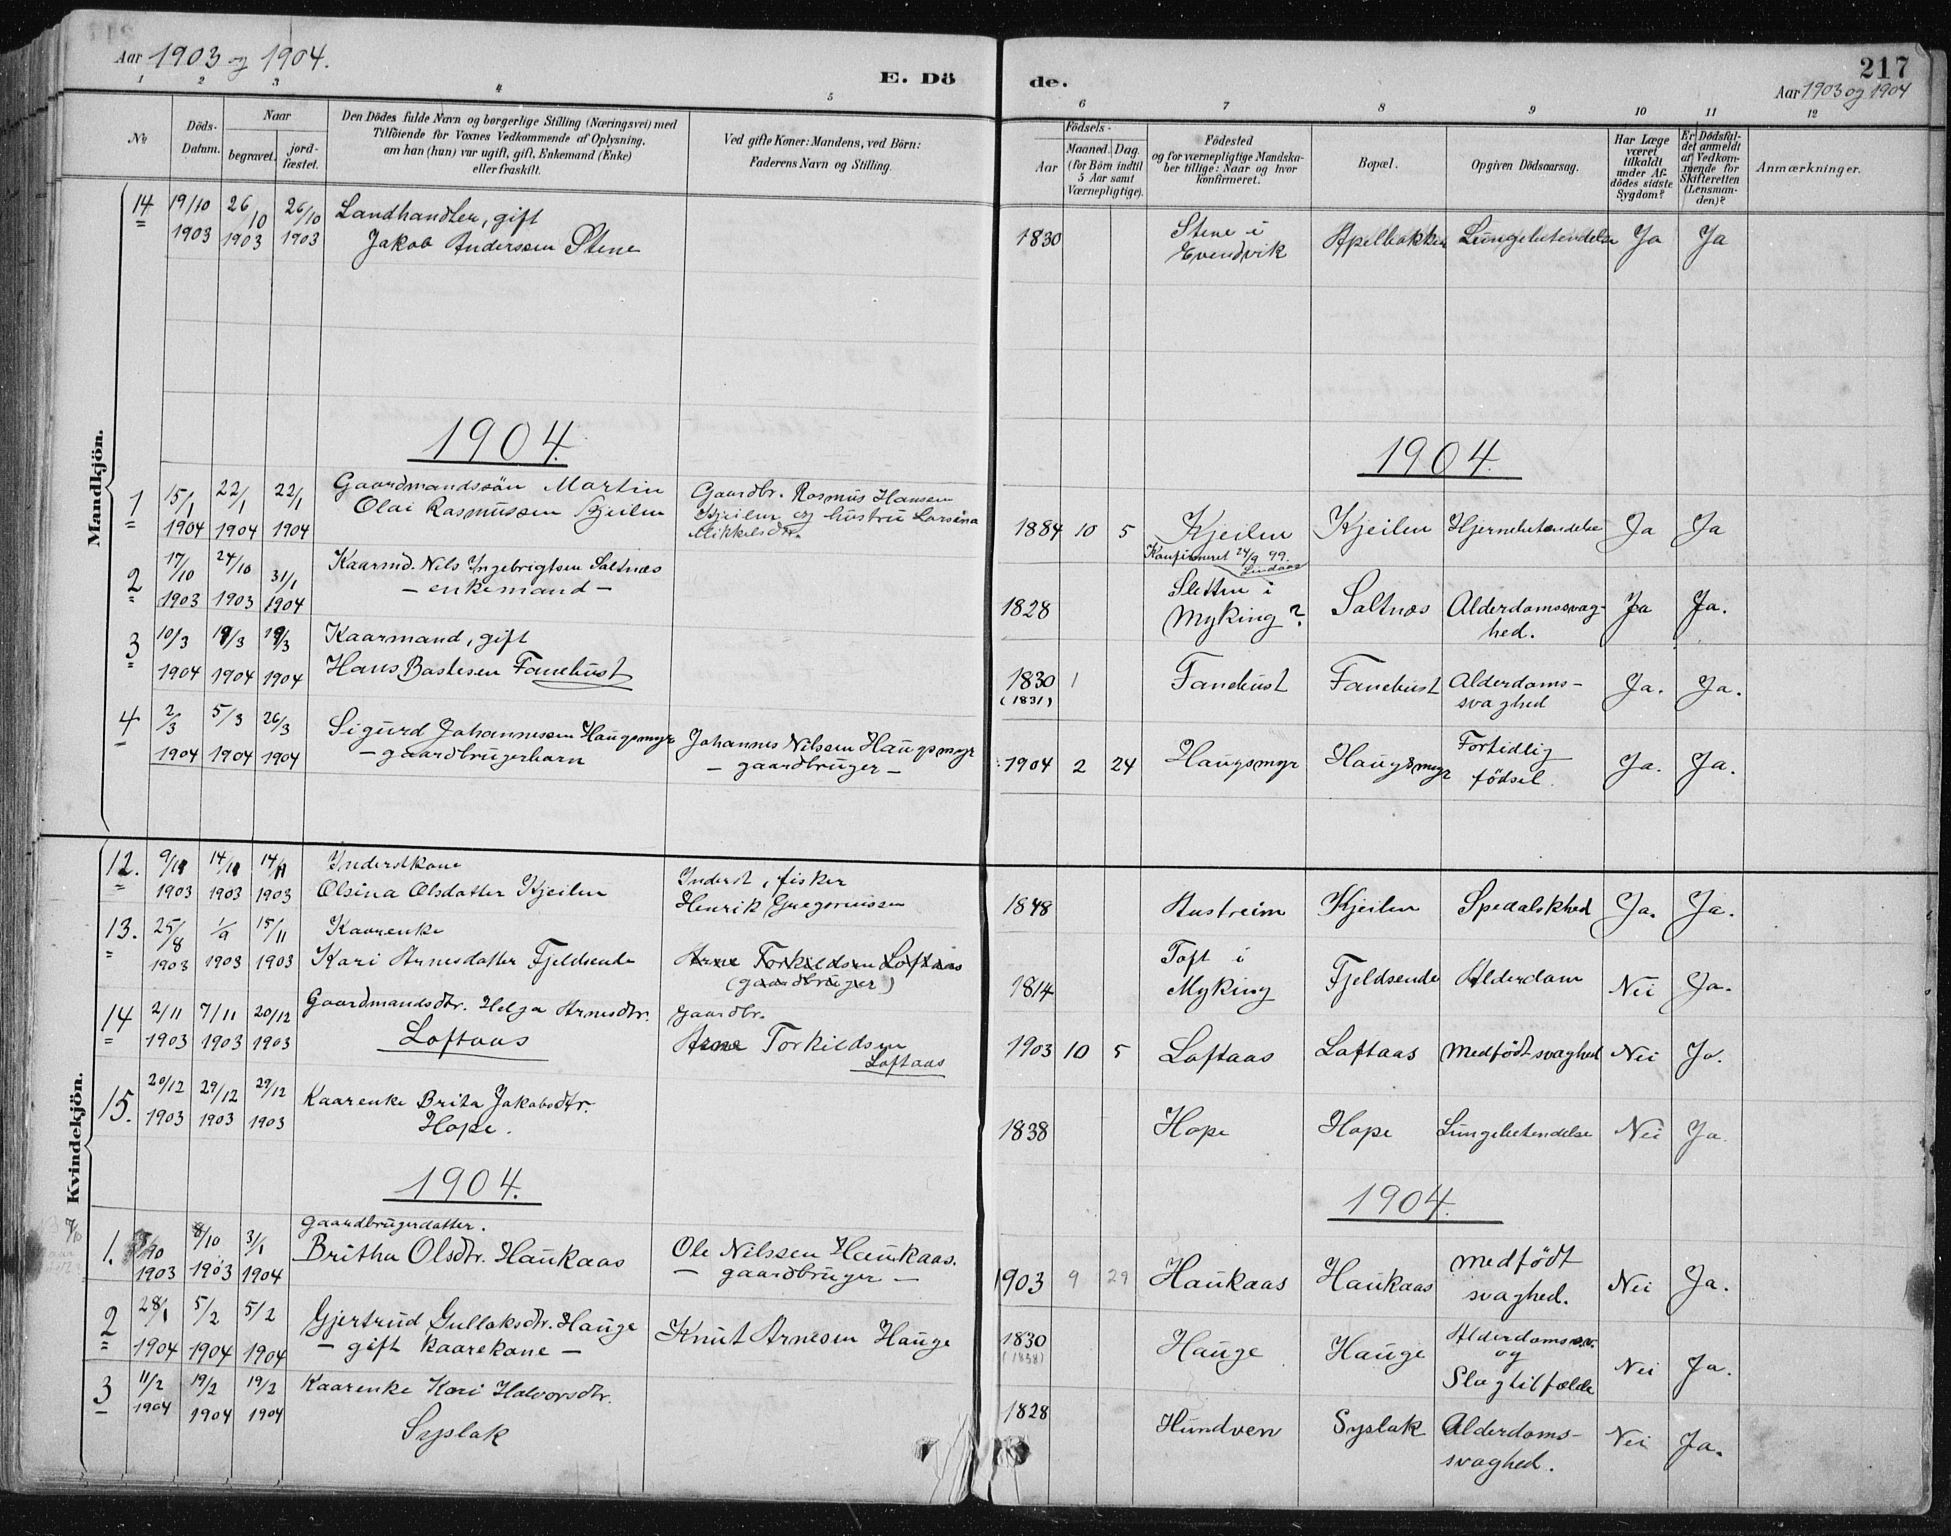 Aar 1903 og 1904.
E. Dö
de.
217
Aar 1903 og 1904
1 2 3 4 5 6 7 8 9 10 11 12
№
Döds-
Datum.
Naar
begravet.
jord-
fæstet.
Den Dödes fulde Navn og borgerlige Stilling (Næringsvei) med
Tilföiende for Voxnes Vedkommende af Oplysning,
om han (hun) var ugift, gift, Enkemand (Enke)
eller fraskilt.
Ved gifte Koner: Mandens, ved Börn:
Faderens Navn og Stilling.
Födsels-
Aar
Maaned.
Dag.
(for Börn indtil
5 Aar samt
Værnepligtige).
Födested
og for værnepligtige Mandska-
ber tillige: Naar og hvor
konfirmeret.
Bopæl.
Opgiven Dödsaarsag.
Har Læge
været
tilkaldt
under Af-
dödes sidste
Sygdom?
Er Dödsfal-
det anmeldt
af Vedkom-
mende for
Skifteretten
(Lensman-
den)?
Anmærkninger.
Mandkjön.
14 19/10 26/10 26/10 Landhandler, gift
1903 1903 1903 Jakob Anderssen Stene
1830 Stene i Evendvik Apelbakken Lungebetendelse Ja Ja
1904.
1904.
1 15/1 22/1 22/1 Gaardmandssön Martin Gaardbr. Rasmus Hansen
1904 1904 1904 Olai Rasmussen Kjeilen Kjeilen og hustru Larsina
Mikkelsdtr.
1884 10 5 Kjeilen Kjeilen Hjernebetendelse Ja Ja
Konfirmeret 24/9 99.
Lindaas
2 17/10 24/10 31/1 Kaarmd. Nils Ingebrigtsen Saltnæs
1903 1903 1904 – enkemand –
1828 Sletten i Myking? Saltnæs Alderdomssvag-
hed. Ja Ja.
3 10/3 19/3 19/3 Kaarmand, gift
1904 1904 1904 Hans Bastesen Fanebust
1830 1 Fanebust Fanebust Alderdoms-
(1831) svaghed Ja. Ja.
4 2/3 5/3 26/3 Sigurd Johannessen Haugsmyr Johannes Nilssen Haugsmyr
1904 1904 1904 – gaardbrugerbarn – gaardbruger –
1904 2 24 Haugsmyr Haugsmyr Fortidlig
födsel. Ja. Ja.
Kvindekjön.
12. 9/11 14/11 14/11 Inderstkone
1903 1903 1903 Olsina Olsdatter Kjeilen Inderst, fisker
Henrik Gregoriussen
1848 Austreim Kjeilen Spedalskhed Ja. Ja.
13. 25/8 1/9 15/11 Kaarenke
1903 1903 1903 Kari Arnesdatter Fjeldsende Arne Torkildsen Loftaas
(gaardbruger)
1814 Toft i Myking Fjeldsende Alderdom Nei Ja.
14 2/11 7/11 20/12 Gaardmandsdtr. Helga Arnesdtr. gaardbr.
1903 1903 1903 Loftaas Arne Torkildsen
Loftaas
1903 10 5 Loftaas Loftaas Medfödt svaghed Nei Ja.
15. 20/12 29/12 29/12 Kaarenke Brita Jakobsdtr.
1903 1903 1903 Hope.
1838 Hope Hope Lungebetendelse Nei Ja
1904.
1904.
gaardbrugerdatter.
1. 8/10 3/1 Britha Olsdtr. Haukaas Ole Nilssen Haukaas.
1903 1903 1904 – gaardbruger –
1903 9 29 Haukaas Haukaas Medfödt
svaghed. Nei Ja.
2 28/1 5/2 5/2 Gjertrud Gullaksdtr. Hauge Knut Arnesen Hauge
1904 1904 1904 – gift kaarekone –
1830 Hauge Hauge Alderdomssv.
(1838) og
Slagtilfælde Nei Ja.
3 11/2 19/2 19/2 Kaarenke Kari Halvorsdtr.
1904 1904 1904 Syslak
1828 Hundven Syslak Alderdoms-
svaghed. Nei Ja.